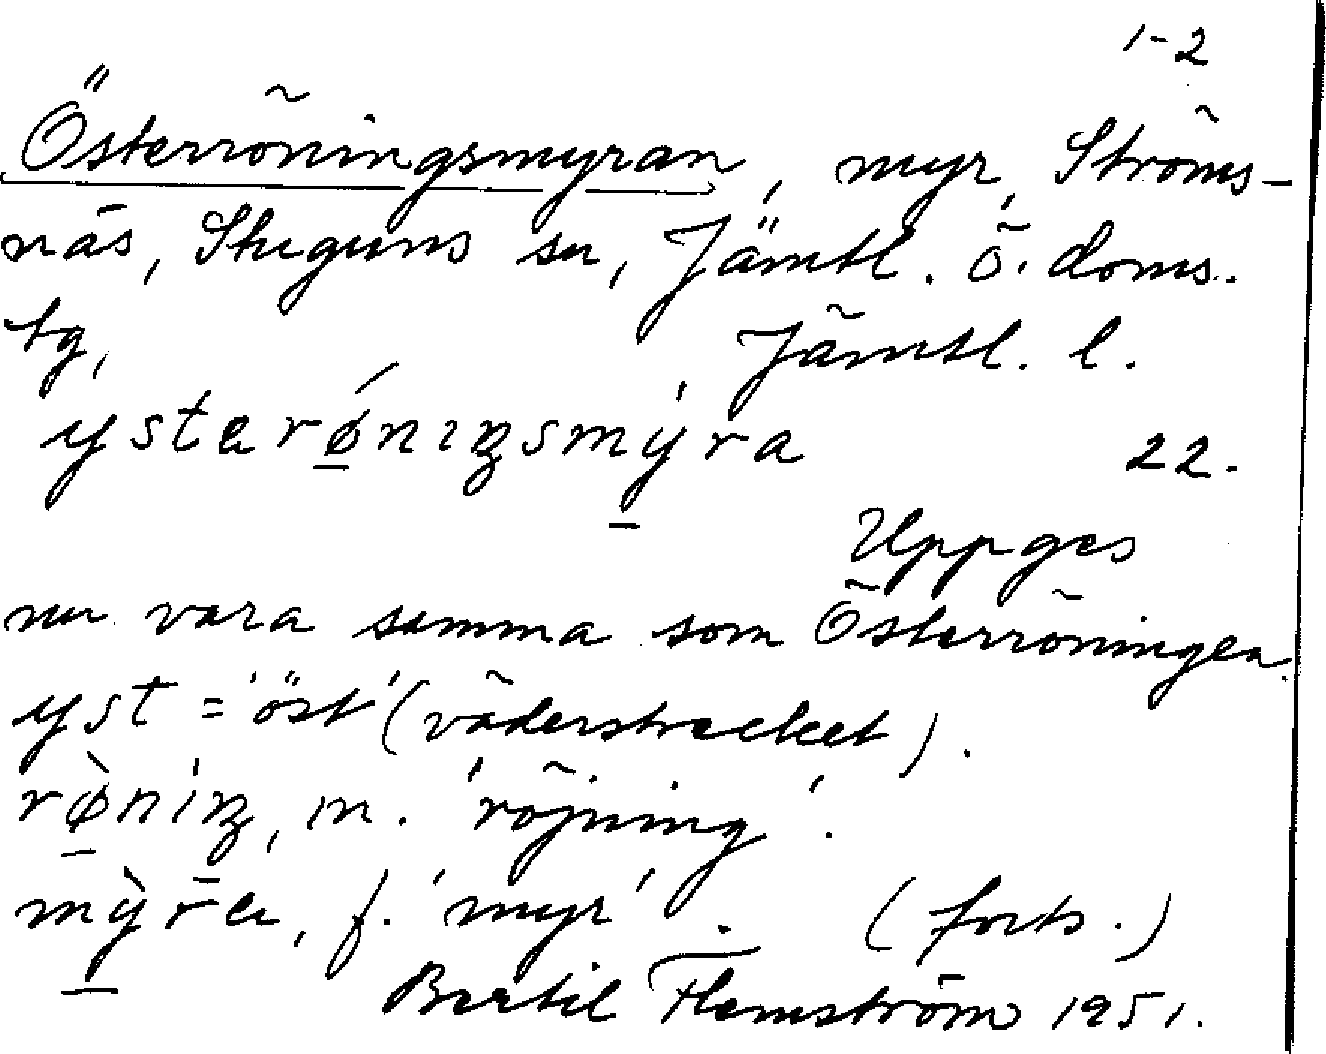 1-2
Österröningsmyran, myr, Ströms-
näs, Stuguns sn, Jämtl. ö. doms.
tg,
Jämtl. l.
ysterǿ̱niŋsmý̱ra 22.
Uppges
nu vara samma som Österröningen.
yst = 'öst' (väderstrecket).
rø̱̀níŋ, m. 'röjning'.
mỳ̱r̄a, f. 'myr'. (forts.)
Bertil Flemström 1951.